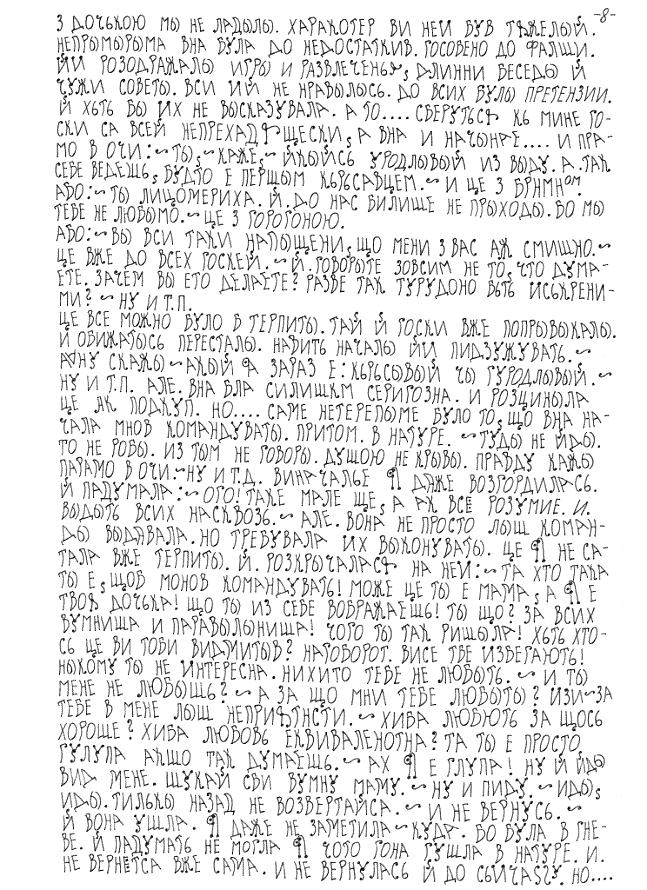 -8-
З ДОЧЬКОЮ МЫ НЕ ЛАДЫЛЫ. ХАРАКОТЕР ВИ НЕИ БУВ ТЯЖЕЛЫЙ.
НЕПРЫМЫРЫМА ВНА БУЛА ДО НЕДОСТАТКИВ. ГОСОВЕНО ДО ФАЛЩИ.
ЙИ РОЗОДРАЖАЛЫ ИГРЫ И РАЗВЛЕЧЕНЬЯ, ДЛИННИ БЕСЕДЫ Й
ЧУЖИ СОВЕТЫ. ВСИ ИЙ НЕ НРАВЫЛЫСЬ. ДО ВСИХ БУЛЫ ПРЕТЕНЗИИ.
Й ХЬТЬ БЫ ИХ НЕ ВЫСКАЗУВАЛА. А ТО.... СБЕРУТЬСЯ КЬ МИНЕ ГО-
СКИ СА ВСЕЙ НЕПРЕХАДЯЩЕСКИ, А ВНА И НАЧЫНАЕ.... И ПРА-
МО В ОЧИ:~ТЫ,~КАЖЕ,~ЙКЫЙСЬ УРОДЛЫВЫЙ ИЗ ВЫДУ. А ТАК
СЕБЕ ВЕДЕШЬ, БУДТО Е ПЕРШЫМ КЬРЬСАВЦЕМ.~И ЦЕ З БРНМНОМ.
АБО:~ТЫ ЛИЦОМЕРИХА. Й ДО НАС БИЛИШЕ НЕ ПРЫХОДЫ. БО МЫ
ТЕБЕ НЕ ЛЮБЫМО.~ЦЕ З ГОРОГОНОЮ.
АБО:~ВЫ ВСИ ТАКИ НАПЫЩЕНИ, ЩО МЕНИ З ВАС АЖ СМИШНО.~
ЦЕ ВЖЕ ДО ВСЕХ ГОСКЕЙ.~Й ГОВОРЫТЕ ЗОВСИМ НЕ ТО, ЧТО ДУМА-
ЕТЕ. ЗАЧЕМ ВЫ ЕТО ДЕЛАЕТЕ? РАЗВЕ ТАК ТУРУДОНО БЬТЬ ИСЬКРЕНИ-
МИ?~НУ И Т.П.
ЦЕ ВСЕ МОЖНО БУЛО В ТЕРПИТЫ. ТАЙ Й ГОСКИ ВЖЕ ПОПРЫВЫКАЛЫ.
И ОБИЖАТЫСЬ ПЕРЕСТАЛЫ. НАВИТЬ НАЧАЛЫ ЙИ ПИДЗУЖУВАТЬ.~
АНУ СКАЖЫ~АКЫЙ Я ЗАРАЗ Е: КЬРЬСЫВЫЙ ЧЫ ГУРОДЛЫВЫЙ.~
НУ И Т.П. АЛЕ. ВНА БЛА СИЛИШКМ СЕРИГОЗНА. И РОЗЦИНЫЛА
ЦЕ ЯК ПОДКУП. НО.... САМЕ НЕТЕРЕПЫМЕ БУЛО ТО, ЩО ВНА НА-
ЧАЛА МНОВ КОМАНДУВАТЫ. ПРИТОМ. В НАТУРЕ.~ТУДЫ НЕ ЙДЫ.
ТО НЕ РОБЫ. ИЗ ТЫМ НЕ ГОВОРЫ. ДУШОЮ НЕ КРЫВЫ. ПРАВДУ КАЖЫ
ПАРАМО В ОЧИ.~НУ И Т.Д. ВИНАЧАЛЬЕ Я ДАЖЕ ВОЗГОРДИЛАСЬ.
Й ПАДУМАЛА:~ОГО! ТАКЕ МАЛЕ ЩЕ, А АК ВСЕ РОЗУМИЕ. И.
ВЫДЫТЬ ВСИХ НАСКВОЗЬ.~АЛЕ. ВОНА НЕ ПРОСТО ЛЫШ КОМАН-
ДЫ ВЫДАВАЛА. НО ТРЕБУВАЛА ИХ ВЫКОНУВАТЫ. ЦЕ Я НЕ СА-
ТАЛА ВЖЕ ТЕРПИТЫ. Й. РОЗКРЫЧАЛАСЯ НА НЕИ:~ТА ХТО ТАКА
ТЫ Е, ЩОБ МОНОВ КОМАНДУВАТЬ! МОЖЕ ЦЕ ТЫ Е МАМА, А Я Е
ТВОЯ ДОЧЬКА! ЩО ТЫ ИЗ СЕБЕ ВОБРАЖАЕШЬ! ТЫ ЩО? ЗА ВСИХ
ВУМНИША И ПАРАВЫЛЫНИША! ЧОГО ТЫ ТАК РИШЫЛА! ХЬТЬ ХТО-
СЬ ЦЕ ВИ ТОБИ ВИДМИТЫВ? НАГОБОРОТ. ВИСЕ ТБЕ ИЗБЕГАЮТЬ!
НЫКОМУ ТЫ НЕ ИНТЕРЕСНА. НИХИТО ТЕБЕ НЕ ЛЮБЫТЬ.~И ТЫ
МЕНЕ НЕ ЛЮБЫЩЬ?~А ЗА ЩО МНИ ТЕБЕ ЛЮБЫТЫ? ИЗИ~ЗА
ТЕБЕ В МЕНЕ ЛЫШ НЕПРИЯТНСТИ.~ХИБА ЛЮБЮТЬ ЗА ЩОСЬ
ХОРОШЕ? ХИБА ЛЮБОВЬ ЕКВИВАЛЕНОТНА? ТА ТЫ Е ПРОСТО
ГУЛУПА АКШО ТАК ДУМАЕШЬ.~АХ Я Е ГЛУПА! НУ Й ЙДЫ
ВИД МЕНЕ. ШУКАЙ СВИ ВУМНУ МАМУ.~НУ И ПИДУ.~ИДЫ,
ИДЫ. ТИЛЬКЫ НАЗАД НЕ ВОЗВЕРТАЙСА.~И НЕ ВЕРНУСЬ.~
Й ВОНА УШЛА. Я ДАЖЕ НЕ ЗАМЕТИЛА~КУДА. БО БУЛА В ГНЕ-
ВЕ. Й ПАДУМАТЬ НЕ МОГЛА Я ЧОГО ГОНА ГУШЛА В НАТУРЕ. И.
НЕ ВЕРНЕТСА ВЖЕ САМА. И НЕ ВЕРНУЛАСЬ Й ДО СЫЧАЗГУ. НО....